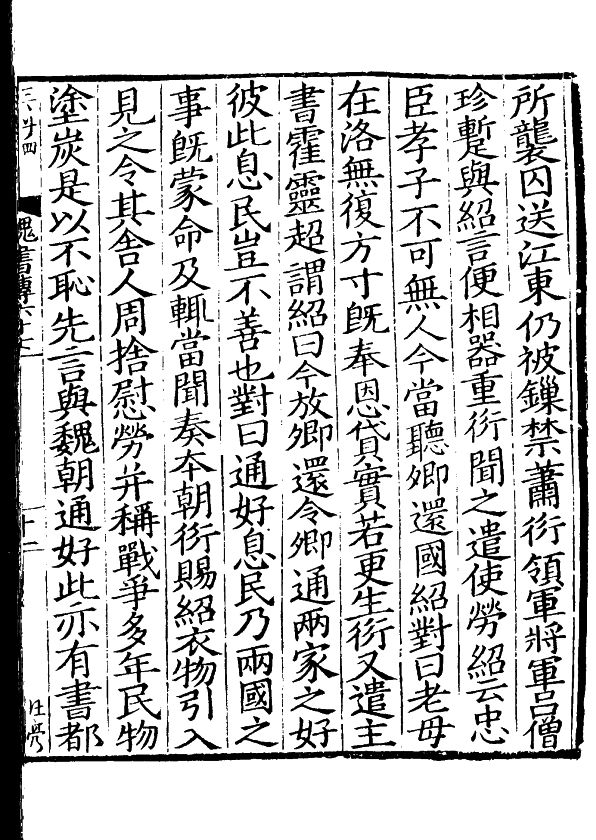 所襲囚送江東仍被鏁禁蕭衍領軍將軍呂僧
珍蹔與紹言便相器重衍聞之遣使勞紹云忠
臣孝子不可無人今當聽卿還國紹對曰老母
在洛無復方寸旣奉恩貸實若更生衍又遣主
書霍靈超謂紹曰今放卿還令卿通兩家之好
彼此息民豈不善也對曰通好息民乃兩國之
事旣蒙命及輒當聞奏本朝衍賜紹衣物引入
見之令其舍人周捨慰勞并稱戰爭多年民物
塗炭是以不恥先言與魏朝通好此亦有書都
魏書傳六十七
十二